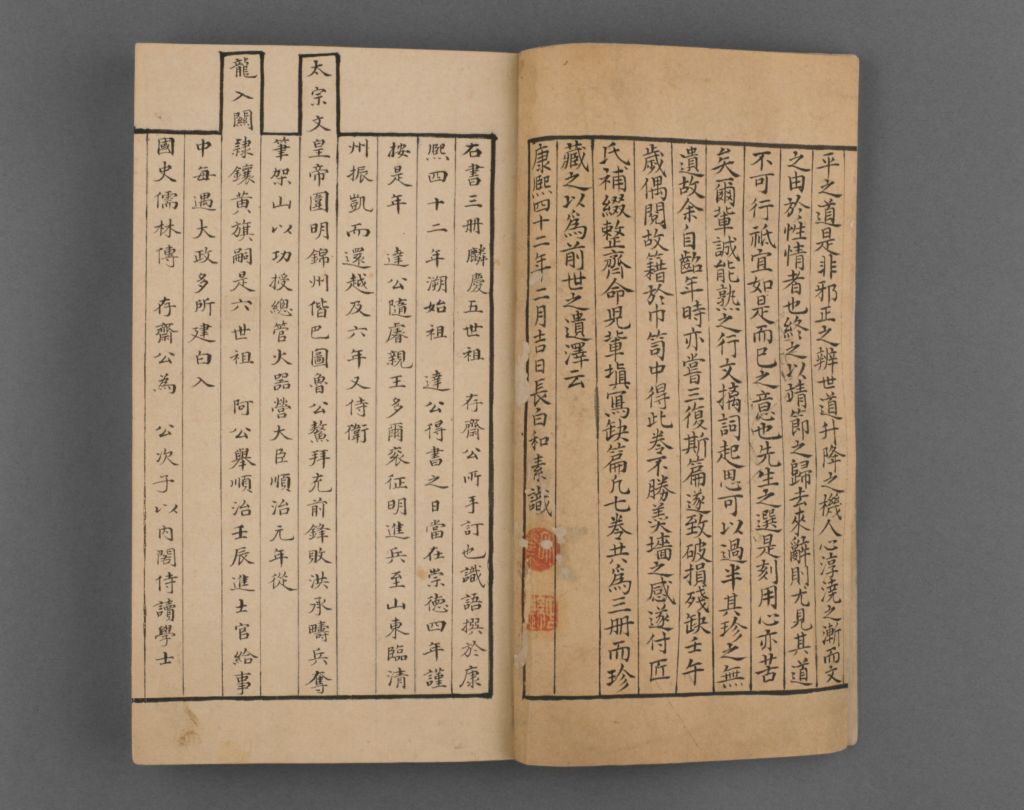 平之道是非邪正之辨世道升降之機人心淳澆之漸而文
之由於性情者也終之以靖節之歸去來辭則尤見其道
不可行祗宜如是而已之意也先生之選是刻用心亦苦
矣爾輩誠能熟之行文摛詞起思可以過半其珍之無
遺故余自齠年時亦嘗三復斯篇遂致破損殘缺壬午
歲偶閱故籍於巾笥中得此卷不勝羹墻之感遂付匠
氏補綴整齊命兒輩塡寫缺篇凢七卷共爲三冊而珍
藏之以爲前世之遺澤云
康熙四十二年二月吉日長白和素識
右書三冊麟慶五世祖 存齋公所手訂也識語撰於康
熙四十二年溯始祖 達公得書之日當在崇德四年謹
按是年 達公隨睿親王多爾袞征明進兵至山東臨清
州振凱而還越及六年又侍衛
太宗文皇帝圍明錦州偕巴圖魯公鰲拜充前鋒敗洪承疇兵奪
筆架山以功授總管火器營大臣順治元年從
龍入關隸鑲黃旗嗣是六世祖 阿公舉順治壬辰進士官給事
中每遇大政多所建白入
國史儒林傳 存齋公為 公次子以內閣侍讀學士